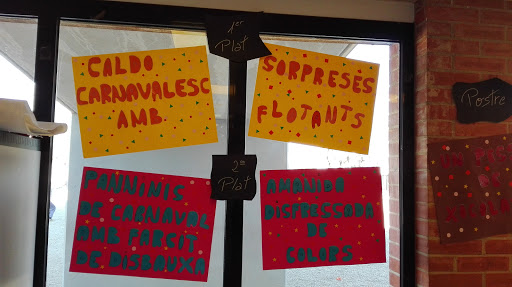 1er
Plat
CALDO
CARNAVALESC
AMB.
SORPRESES
FLOTANTS
2on
Plat
PANNINIS
DE CARNAVAL
AMB FARCIT
DE DISBAUXA
AMANIDA
DISFRESSADA
DE
COLORS
Postre